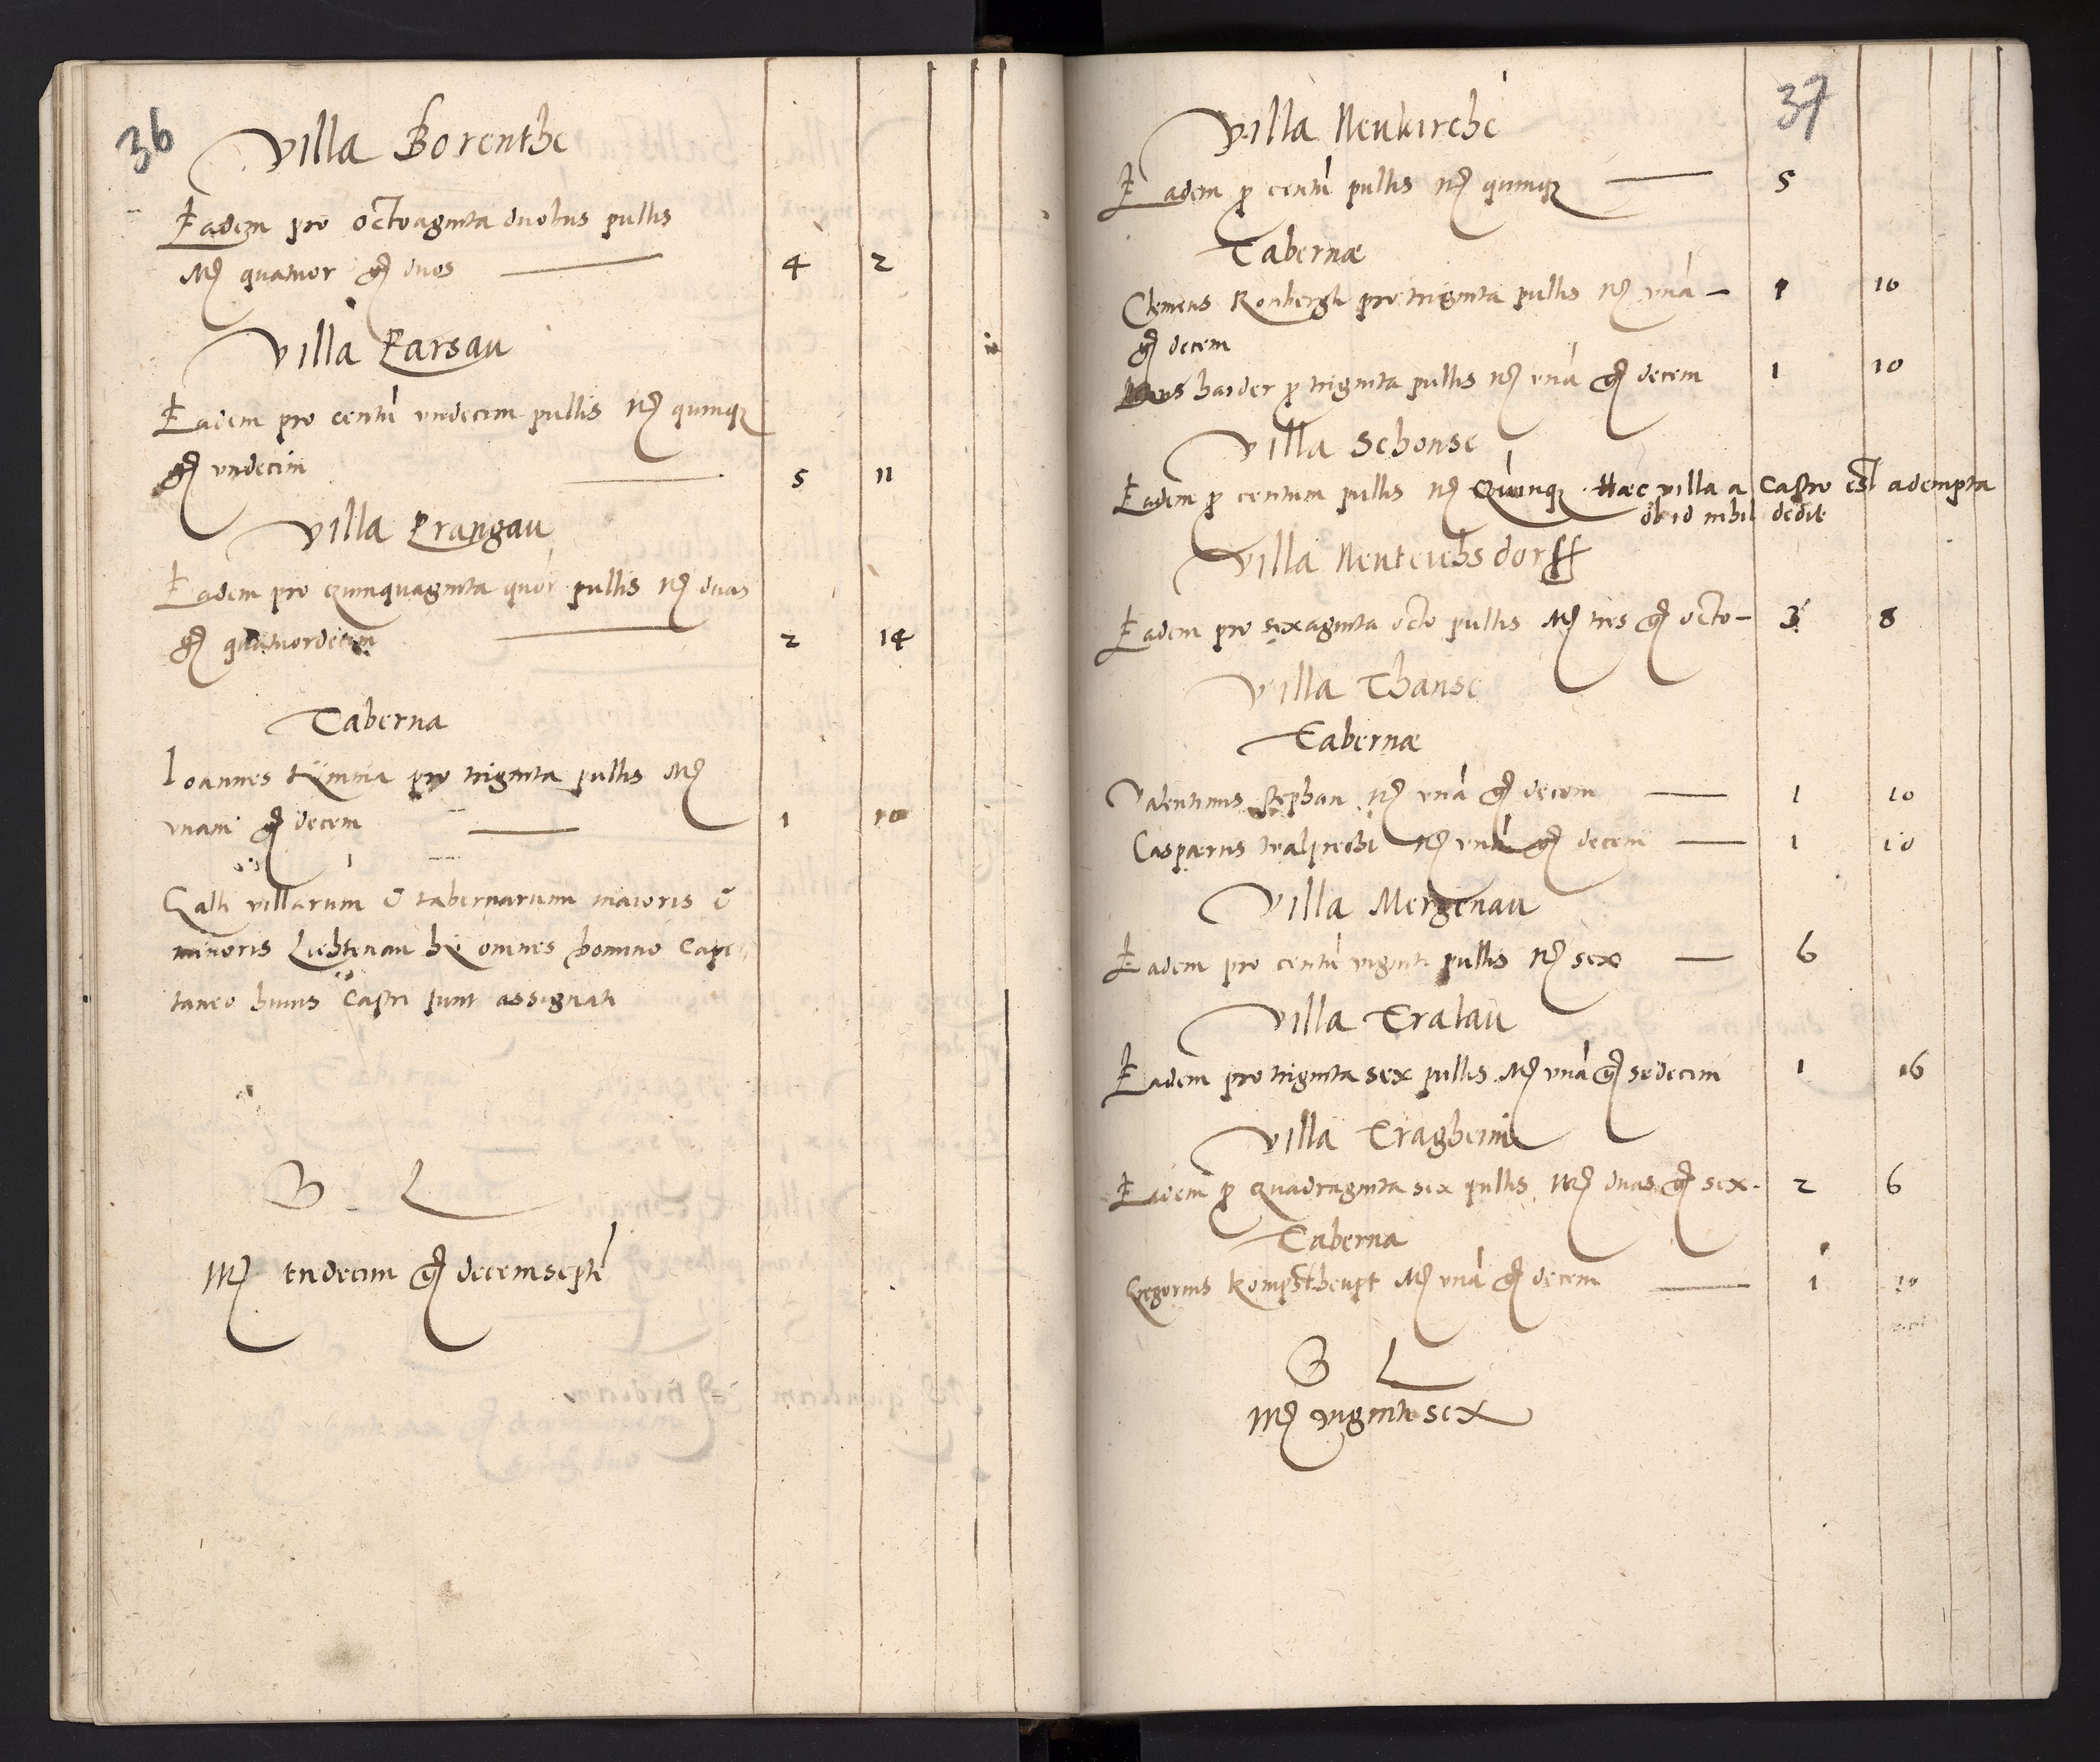 36
Villa Borenthe
Eadem pro octoaginta duobus pullis
M) quatuor g) duos — 4 2
Villa Parsau
Eadem pro centū vndecim pullis M) quinqꝫ
g) vndecim — 5 11
Villa Prangau
Eadem pro quinquaginta quor pullis M) duas
g) quatuordecim — 2 14
Taberna
Ioannes pro triginta pullis M)
vnam g) decem — 1 10
Galli villarum & tabernarum maioris &
minoris Liechtenau hij omnes domino Capi
taneo huius Castri sunt assignati
S L
M) vndecim g) decemseptē
37
Villa Neukirche
Eadem ꝓ centū pullis M) quinqꝫ — 5
Tabernæ
Clemens Ronbergk pro triginta pullis M) vnā — 1 10
g) decem
haider ꝓ triginta pullis M) vnā g) decem 1 10
Villa Schonse
Eadem ꝓ centum pullis M) Quinqꝫ. Haec villa a Castro est adempta
ob id nihil dedit
Villa Neuteichsdorff
Eadem pro sexaginta octo pullis M) tres g) octo — 3 8
Villa Thanse
Tabernæ
Valentinus Stephan M) vnā g) decem — 1 10
Casparus M) vnā g) decem — 1 10
Villa Mergenau
Eadem pro centū viginti pullis M) sex — 6
Villa Tralau
Eadem pro triginta sex pullis M) vnā g) sedecim 1 16
Villa Tragheim
Eadem ꝓ quadraginta sex qullis M) duas g) sex. 2 6
Taberna
Gregorius Kompstheupt M) vnā g) decem — 1 10
S L
M) viginti sex